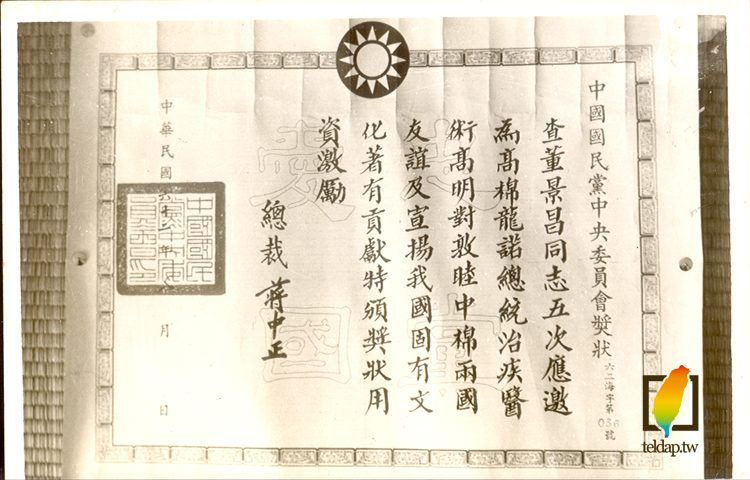 中國國民黨中央委員會獎狀
六二海字第036號
查董景昌同志五次應邀
為高棉龍諾總統治疾醫
術高明對敦睦中棉兩國
友誼及宣揚我國固有文
化著有貢獻特頒獎狀用
資激勵
總裁 蔣中正
中華民國 年 月 日
忠黨
愛國
teldap.tw